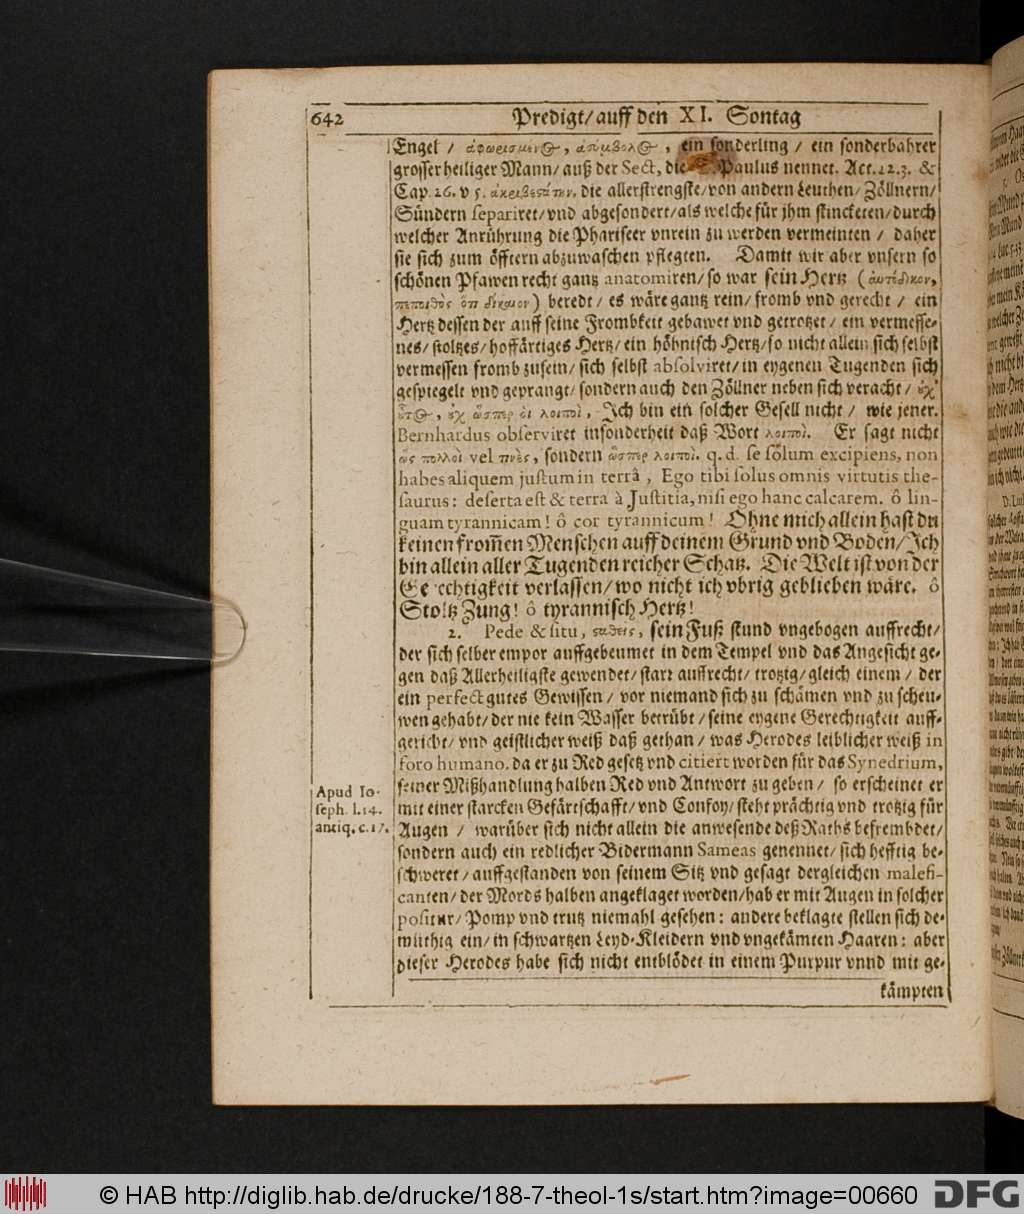 642 Predigt/ auff den XI. Sontag
Engel / ἀφωρισμένος, ἀσύμβολος, ein sonderling / ein sonderbahrer
grosser heiliger Mann/ auß der Sect, die Paulus nennet. Act. 22. 3. &
Cap. 26. v 5. ἀκριβεστάτην, die allerstrengste/ von andern Leuthen/ Zöllnern/
Sündern separiret/ vnd abgesondert/ als welche für jhm stincketen/ durch
welcher Anrührung die Phariseer vnrein zu werden vermeinten / daher
sie sich zum öfftern abzuwaschen pflegten. Damit wir aber vnsern so
schönen Pfawen recht gantz anatomiren/ so war sein Hertz (αὐτόδικον,
πεποιθὸς ὅτι δίκαιον) beredt/ es wäre gantz rein/ fromb vnd gerecht / ein
Hertz dessen der auff seine Frombkeit gebawet vnd getrotzet/ ein vermesse-
nes/ stoltzes/ hoffärtiges Hertz/ ein höhnisch Hertz/ so nicht allein sich selbst
vermessen fromb zusein/ sich selbst absolviret/ in eygenen Tugenden sich
gespiegelt vnd geprangt/ sondern auch den Zöllner neben sich veracht/ οὐχ
οὗτος, οὐχ ὥσπερ οἱ λοιποὶ, Ich bin ein solcher Gesell nicht / wie jener.
Bernhardus observiret insonderheit daß Wort λοιποὶ. Er sagt nicht
ὡς πολλοὶ vel τινὲς, sondern ὥσπερ λοιποὶ. q. d. se sôlum excipiens, non
habes aliquem justum in terrâ, Ego tibi solus omnis virtutis the-
saurus: deserta est & terra à Justitia, nisi ego hanc calcarem. ô lin-
guam tyrannicam! ô cor tyrannicum! Ohne mich allein hast du
keinen from̃en Menschen auff deinem Grund vnd Boden/ Ich
bin allein aller Tugenden reicher Schatz. Die Welt ist von der
Gerechtigkeit verlassen/ wo nicht ich vbrig geblieben wäre. ô
Stoltz Zung! ô tyrannisch Hertz!
2. Pede & situ, σταθεὶς, sein Fuß stund vngebogen auffrecht/
der sich selber empor auffgebeumet in dem Tempel vnd das Angesicht ge-
gen daß Allerheiligste gewendet/ starr auffrecht/ trotzig/ gleich einem / der
ein perfect gutes Gewissen/ vor niemand sich zu schämen vnd zu scheu-
wen gehabt/ der nie kein Wasser betrübt/ seine eygene Gerechtigkeit auff-
gericht/ vnd geistlicher weiß daß gethan/ was Herodes leiblicher weiß in
foro humano, da er zu Red gesetz vnd citiert worden für das Synedrium,
seiner Mißhandlung halben Red vnd Antwort zu geben/ so erscheinet er
Apud Io-
seph. l. 14.
antiq. c. 17.
mit einer starcken Gefärtschafft/ vnd Confoy/ steht prächtig vnd trotzig für
Augen / warüber sich nicht allein die anwesende deß Raths befrembdet/
sondern auch ein redlicher Bidermann Sameas genennet/ sich hefftig be-
schweret/ auffgestanden von seinem Sitz vnd gesagt dergleichen malefi-
canten/ der Mords halben angeklaget worden/ hab er mit Augen in solcher
positur/ Pomp vnd trutz niemahl gesehen: andere beklagte stellen sich de-
müthig ein/ in schwartzen Leyd-Kleidern vnd vngekämten Haaren: aber
dieser Herodes habe sich nicht entblödet in einem Purpur vnnd mit ge-
kämpten
© HAB http://diglib.hab.de/drucke/188-7-theol-1s/start.htm?image=00660
DFG